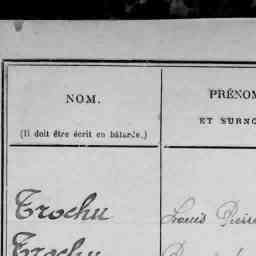 NOM.
(Il doit être écrit en bâtarde.)
PRÉNOM
ET SURNO
Trochu
Louis
Trochu